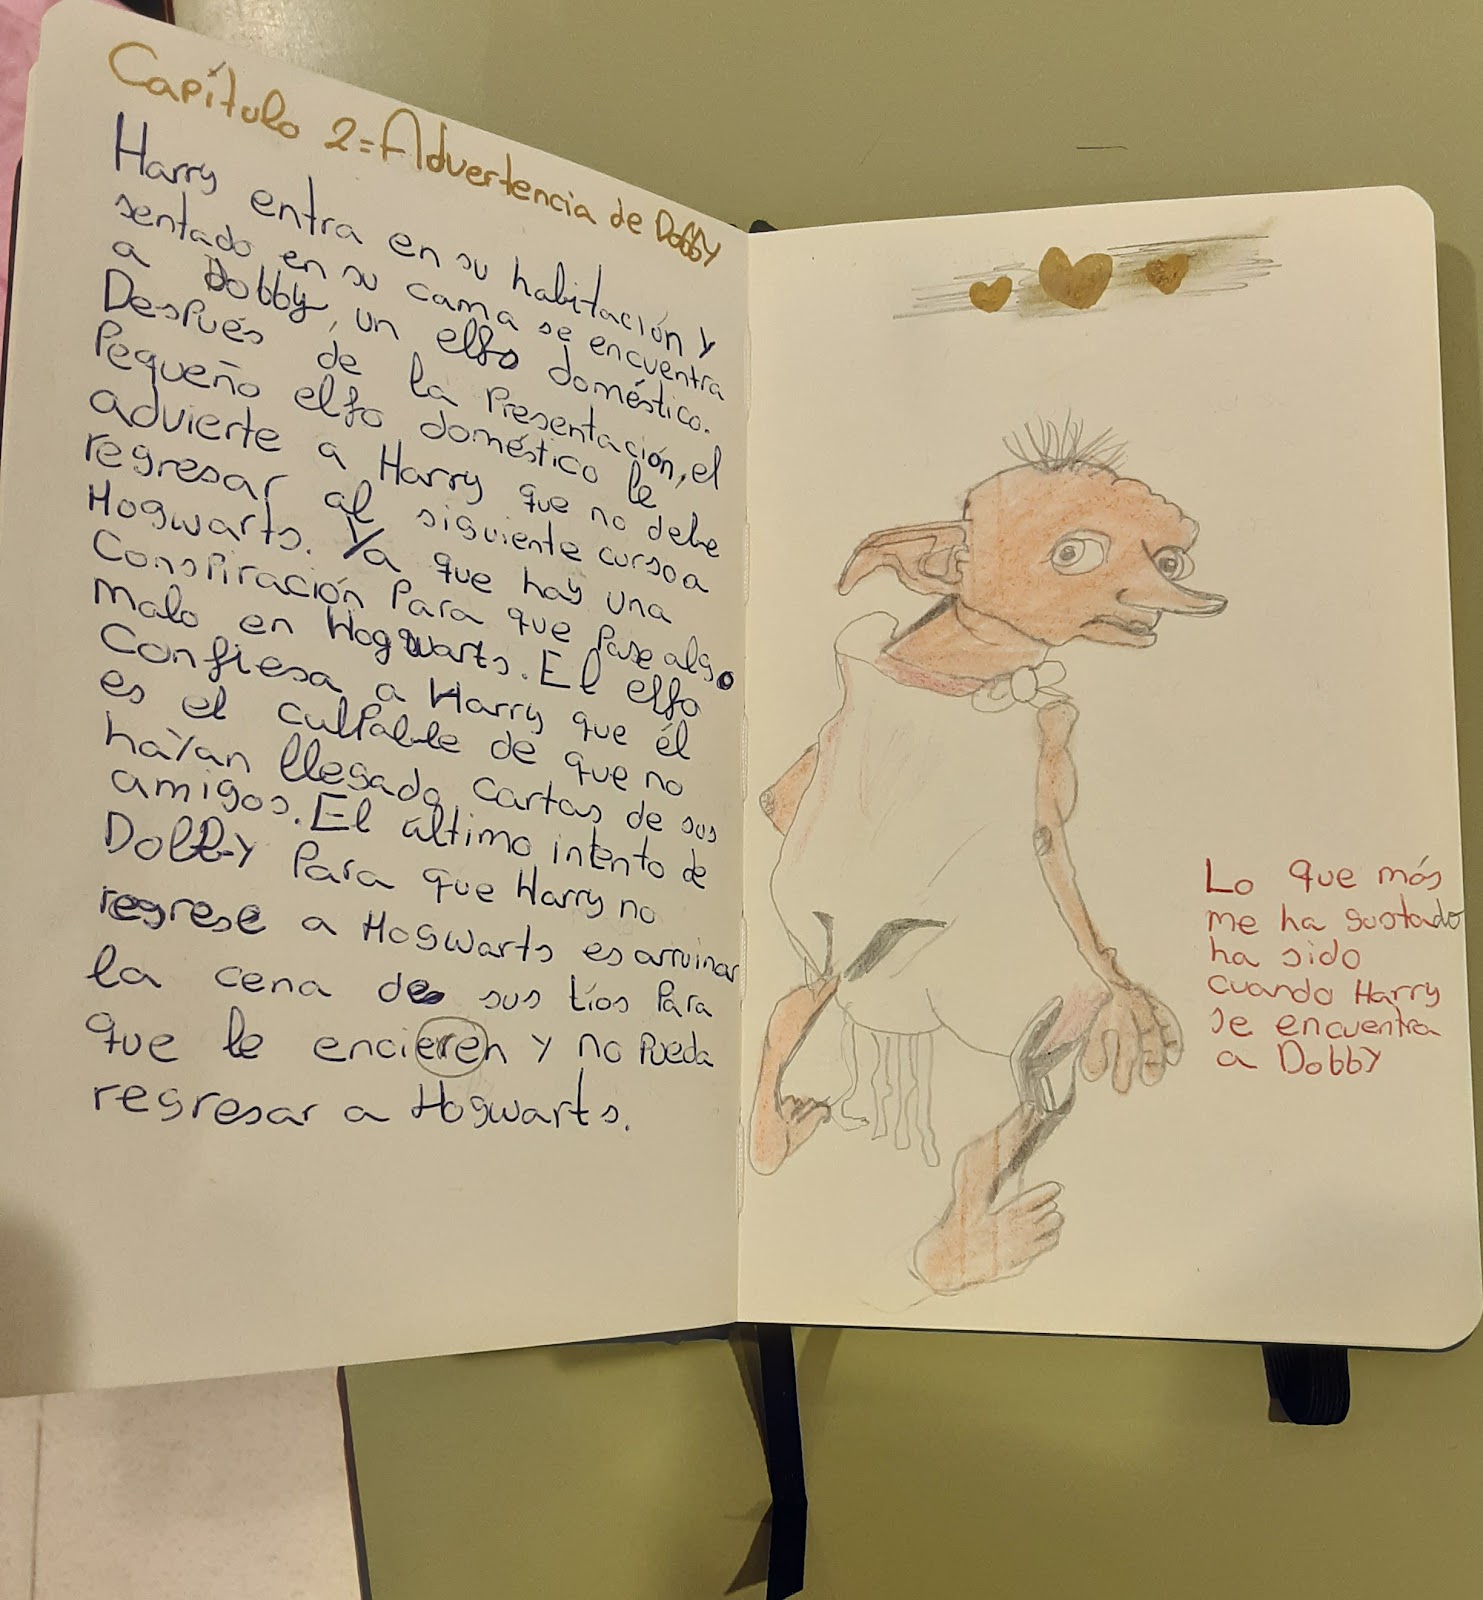 Capítulo 2=Advertencia de Dobby
Harry entra en su habitación y
sentado en su cama se encuentra
a Dobby, un elfo doméstico.
Después de la presentación, el
pequeño elfo doméstico le
advierte a Harry que no debe
regresar al siguiente curso a
Hogwarts. Ya que hay una
conspiración para que pase algo
malo en Hogwarts. El elfo
confiesa a Harry que él
es el culpable de que no
hayan llegado cartas de sus
amigos. El último intento de
Dobby para que Harry no
regrese a Hogwarts es arruinar
la cena de sus tíos para
que le encieren y no pueda
regresar a Hogwarts.
Lo que más
me ha gustado
ha sido
cuando Harry
se encuentra
a Dobby